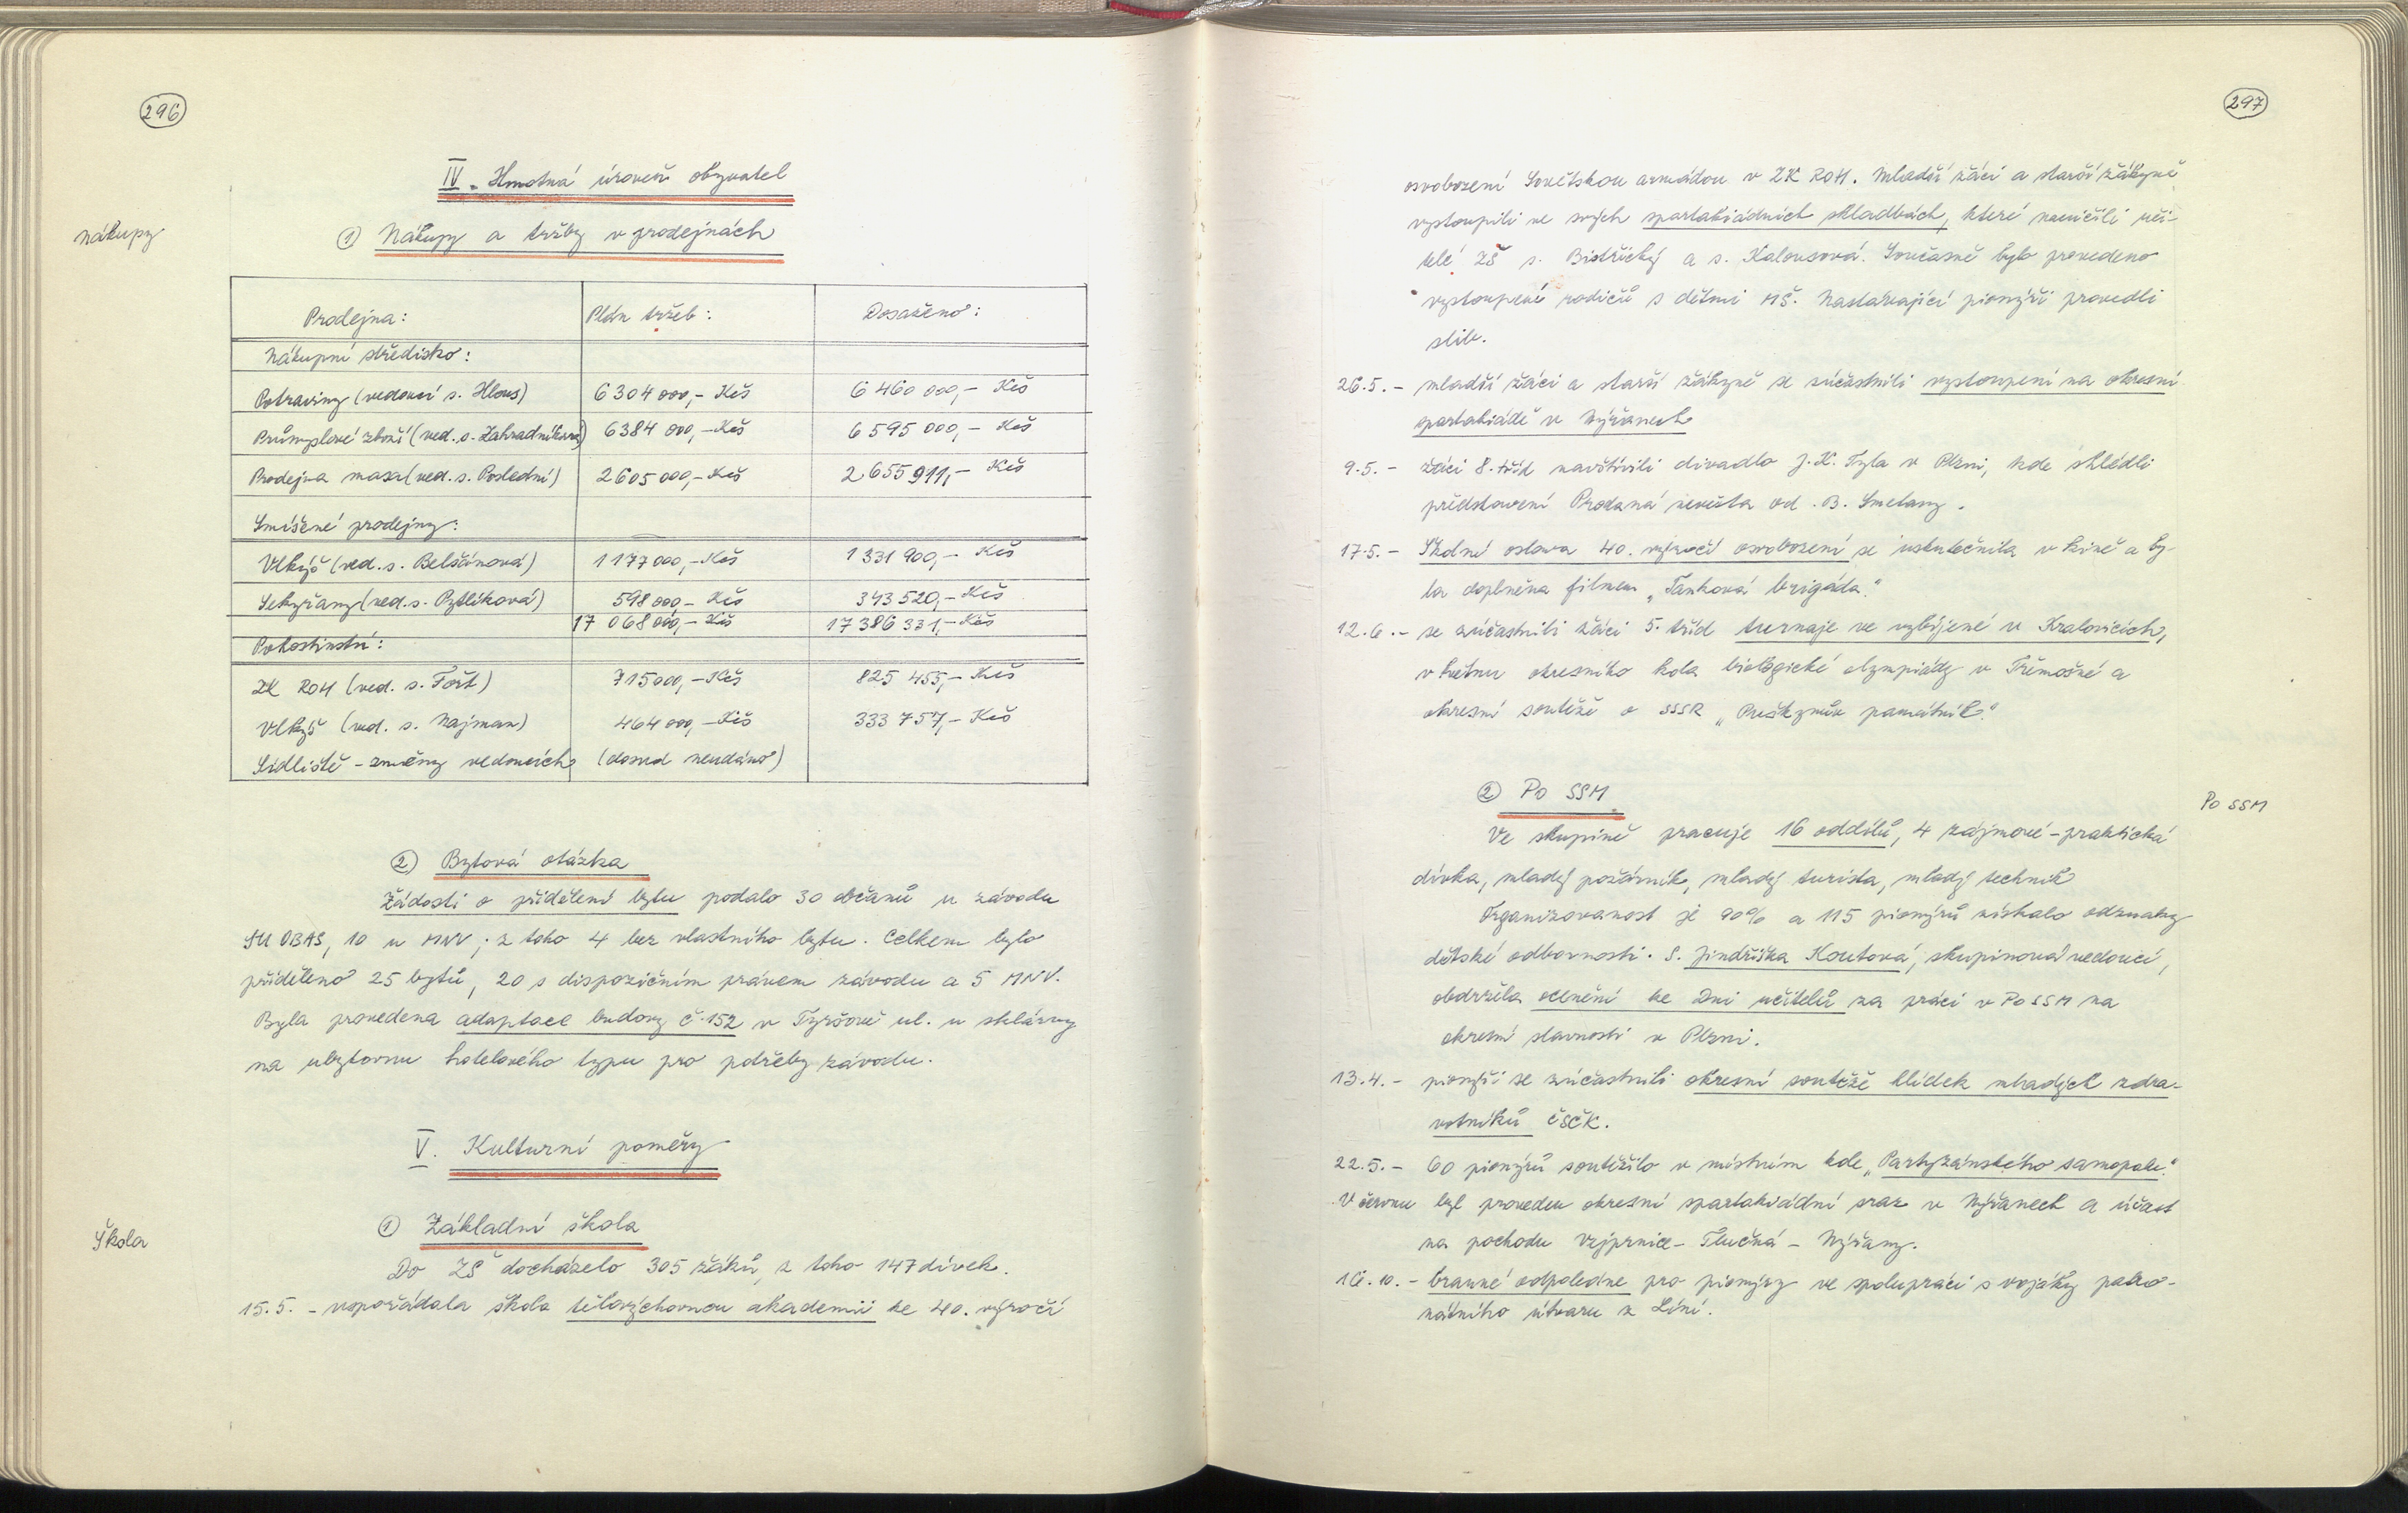 296
IV. Hmotná úroveň obyvatel
nákupy
① Nákupy a tržby v prodejnách
Prodejna: Plán tržeb: Dosaženo:
Nákupní středisko:
Potraviny (vedoucí s. Hlous) 6 304 000,- Kčs 6 460 000,- Kčs
Průmyslové zboží (ved. s. Zahradníková) 6384 000,- Kčs 6 595 000,- Kčs
Prodejna masa (ved. s. Poslední) 2605 000,- Kčs 2 655 911,- Kčs
Smíšené prodejny:
Vlkýš (ved. s. Belšánová) 1 177 000,- Kčs 1 331 900,- Kčs
Sekyřany (ved. s. Pytlíková) 598 000,- Kčs 343 520,- Kčs
17 068 000,- Kčs 17 386 331,- Kčs
Pohostinství:
ZK ROH (ved. s. Fořt) 715000,- Kčs 825 455,- Kčs
Vlkýš (ved. s. Najman) 464 000,- Kčs 333 757,- Kčs
Sídliště - změny vedoucích (dosud neudáno)
② Bytová otázka
Žádosti o přidělení bytu podalo 30 občanů u závodu
SU OBAS, 10 u MNV; z toho 4 bez vlastního bytu. Celkem bylo
přiděleno 25 bytů, 20 s dispozičním právem závodu a 5 MNV.
Byla provedena adaptace budovy č. 152 v Tyršově ul. u sklárny
na ubytovnu hotelového typu pro potřeby závodu.
V. Kulturní poměry
① Základní škola
Škola
Do ZŠ docházelo 305 žáků, z toho 147 dívek.
15.5. - uspořádala škola tělovýchovnou akademii ke 40. výročí
297
osvobození Sovětskou armádou v ZK ROH. Mladší žáci a starší žákyně
vystoupili ve svých spartakiádních skladbách, které nacvičili uči-
telé ZŠ s. Bistřický a s. Kalousová. Současně bylo provedeno
vystoupení rodičů s dětmi MŠ. Nastávající pionýři provedli
slib.
26.5. - mladší žáci a starší žákyně se zúčastnili vystoupení na okresní
spartakiádě v Nýřanech
9.5. - žáci 8. tříd navštívili divadlo J. K. Tyla v Plzni, kde shlédli
představení Prodaná nevěsta od B. Smetany.
17.5. - Školní oslava 40. výročí osvobození se uskutečnila v kině a by-
la doplněna filmem „Tanková brigáda."
12.6. - se zúčastnili žáci 5. tříd turnaje ve vybíjené v Kralovicích,
v květnu okresního kola biologické olympiády v Třemošné a
okresní soutěže o SSSR „Puškinův památník."
② Po SSM
Po SSM
Ve skupině pracuje 16 oddílů, 4 zájmové - praktická
dívka, mladý požárník, mladý turista, mladý technik
Organizovanost je 90% a 115 pionýrů získalo odznaky
dětské odbornosti. S. Jindřiška Koutová, skupinová vedoucí,
obdržela ocenění ke Dni učitelů za práci v Po SSM na
okresní slavnosti v Plzni.
13.4. - pionýři se zúčastnili okresní soutěže hlídek mladých zdra-
votníků ČSČK.
22.5. - 60 pionýrů soutěžilo v místním kole „Partyzánského samopalu."
V červnu byl proveden okresní spartakiádní sraz v Nýřanech a účast
na pochodu Vejprnice - Tlučná - Nýřany.
16.10. - branné odpoledne pro pionýry ve spolupráci s vojáky patro-
nátního útvaru z Líní.